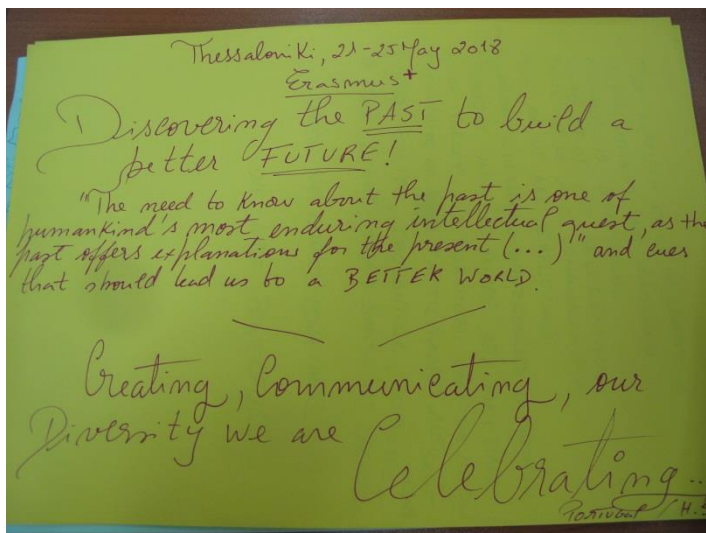 Thessaloniki, 21-25 May 2018
Erasmus+
Discovering the PAST to build a
better FUTURE!
"The need to know about the past is one of
humankind's most enduring intellectual quest, as the
past offers explanations for the present (...)" and cues
that should lead us to a BETTER WORLD.
Creating, Communicating, our
Diversity we are
Celebrating...
Portugal / H.